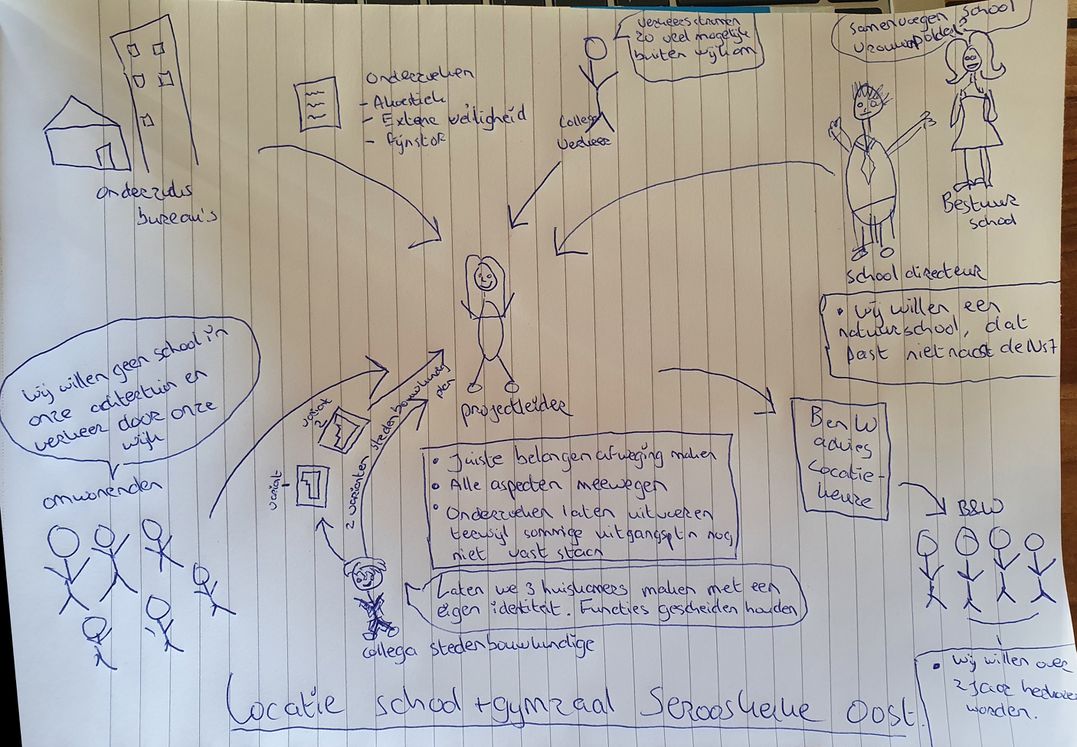 Verkeersstromen
zo veel mogelijk
buiten wijk om
Samenvoegen school
Vrouwenpolder?
Onderzoeken
- Akoestiek
- Externe veiligheid
- Fijnstof
College
Verkeer
Onderzoeks
bureau's
Bestuur
school
schooldirecteur
• Wij willen een
natuurschool, dat
past niet naast de N57
Wij willen geen school in
onze achtertuin en
verkeer door onze
wijk
omwonenden
projectleider
variant
2
variat
1
2 varianten stedenbouwkundig
plan
• Juiste belangenafweging maken
• Alle aspecten meewegen
• Onderzoeken laten uitvoeren
terwijl sommige uitgangsptn nog
niet vast staan
BenW
advies
Locatie-
keuze
B&W
Laten we 3 huiskamers maken met een
eigen identiteit. Functies gescheiden houden
collega stedenbouwkundige
• Wij willen over
2 jaar herkozen
worden.
Locatie school + gymzaal Serooskerke Oost.